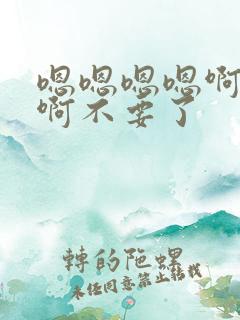 嗯嗯嗯嗯啊
啊不要了
轉的陀螺
未经同意禁止转载